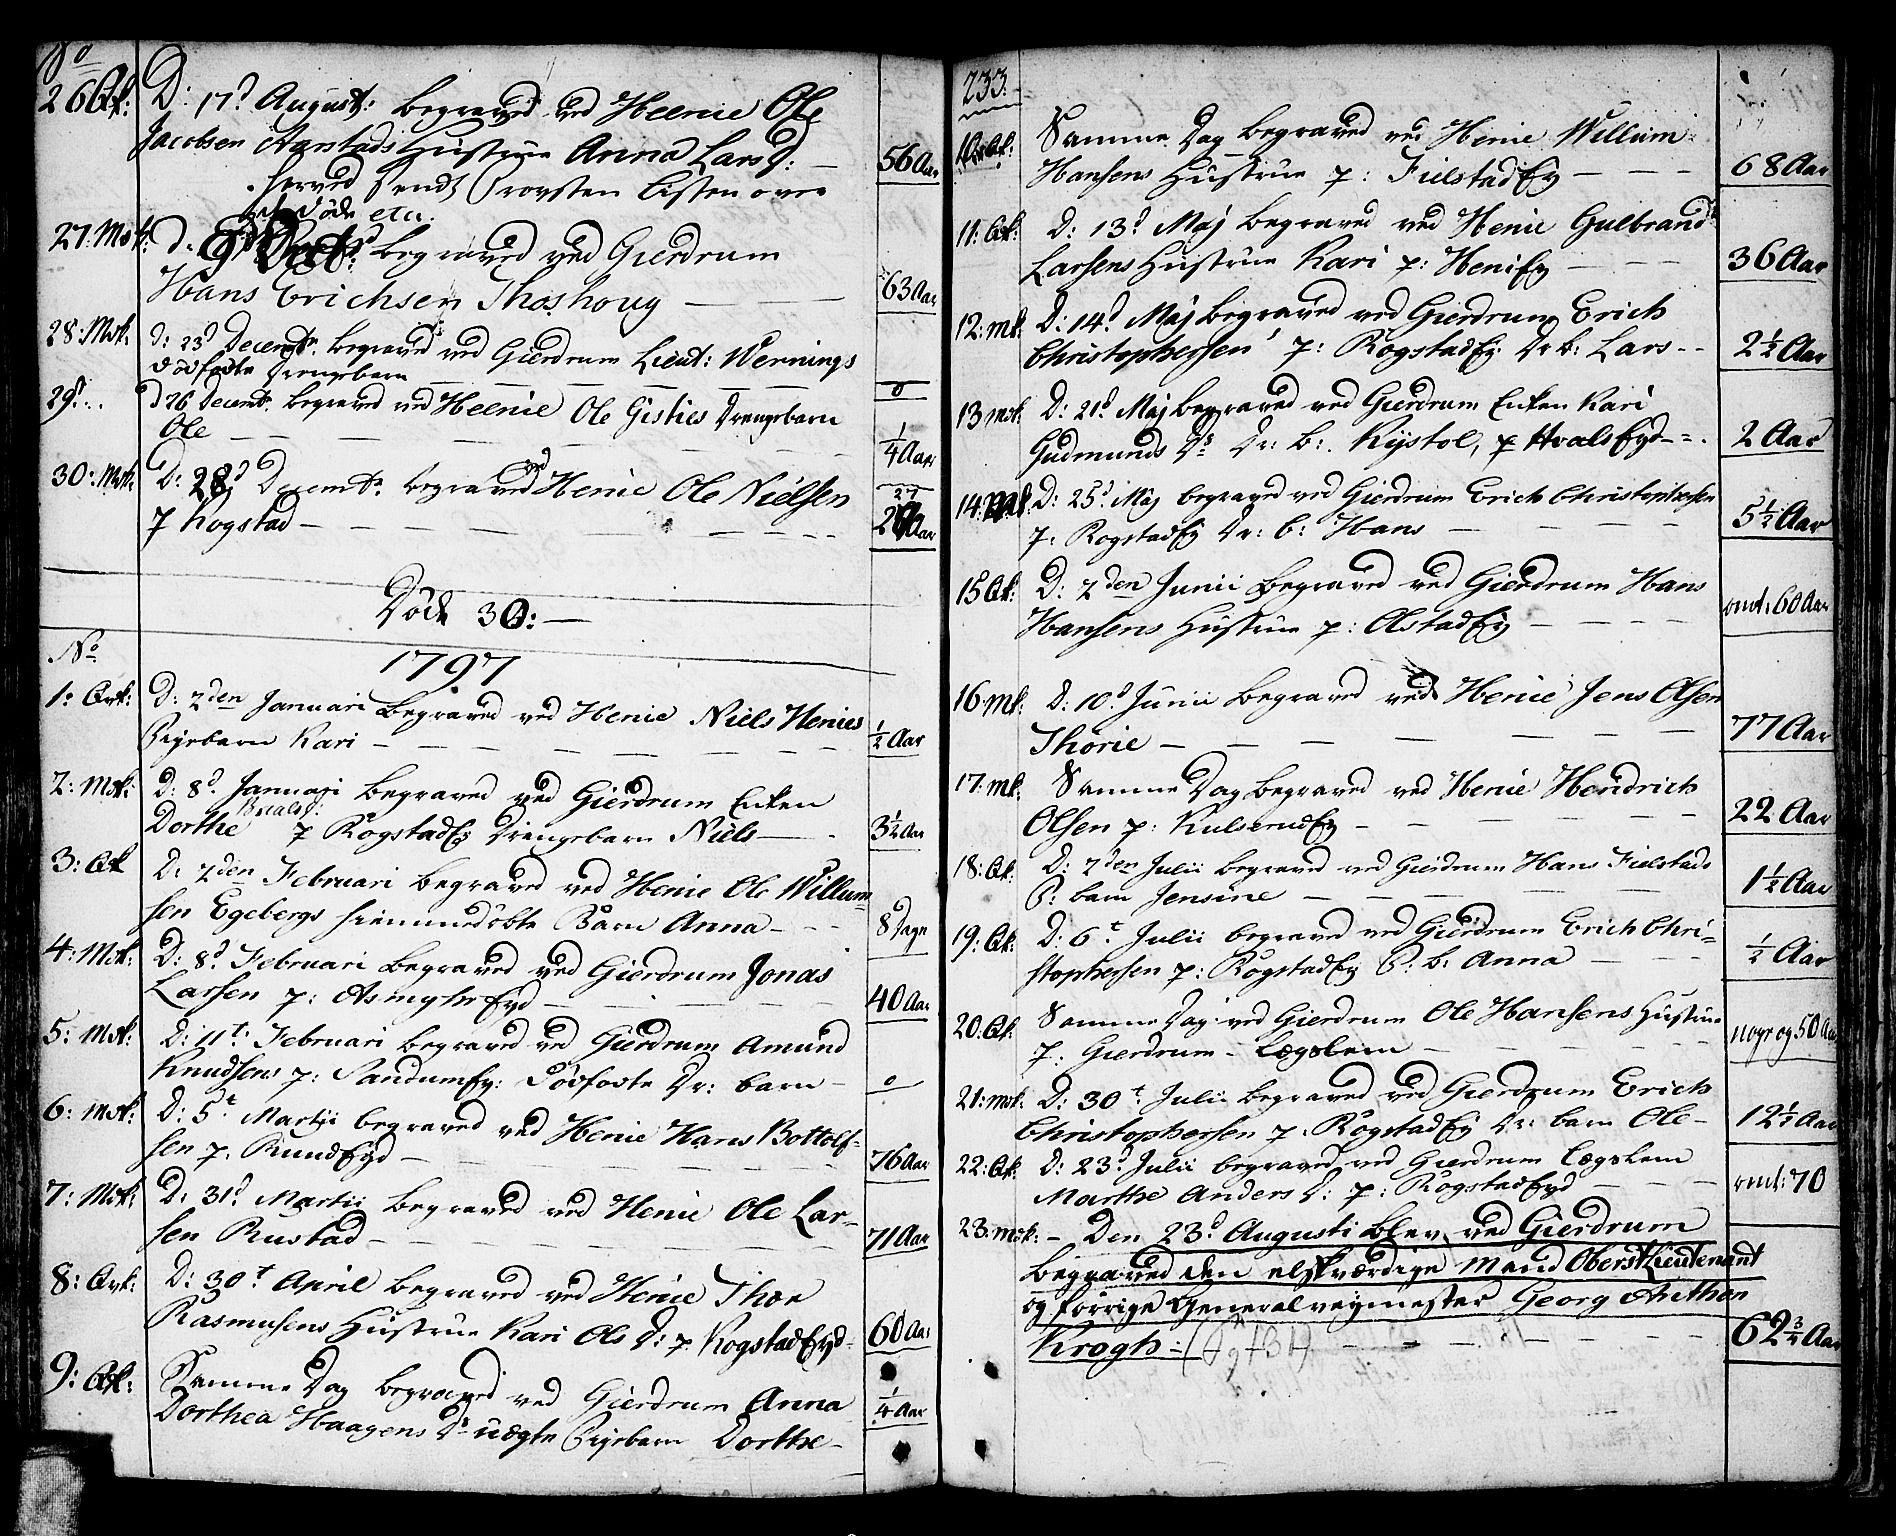 No
26 Qk: D: 17d August: begraved ved Heenie Ole
Jacobsen Aanstads Hustrue Anna Larsd: — 56 Aar
herved sendt Provsten Listen over
de Døde etc.
27: Msk: d. begraved ved Gierdrum
Hans Erichsen Thoshoug — 63 Aar
28: Msk: D: 23d Decembr. begraved ved Gierdrum Lieut: Wernings
dødfødte Drengebarn — 0
29: D 26 Decembr. begraved ved Heenie Ole Gisties Drengebarn
Ole — 1/4 Aar
30: Msk: D: 28d Decembr. begraved ved Henie Ole Nielsen
p Kogstad — 27 Aar
Døde 30: —
No 1797
1: Qvk: D: 2den Januari begraved ved Henie Niels Henies
Pigebarn Kari — 1/2 Aar
2: Msk: D: 8d Januari begraved ved Gierdrum Enken
Dorthe p RogstadEy Drengebarn Niels — 3 1/2 Aar
3: Qk D: 2den Februari begraved ved Henie Ole Willum-
sen Egebergs hiemmedøbte Barn Anna — 8 Dage
4: Msk: D: 8d Februari begraved ved Gierdrum Jonas
Larsen p: AsmyhrEyd — 40 Aar
5: Msk: D: 11t Februari begraved ved Gierdrum Amund
Knudsens p: SandumEy: dødfødte Dr: barn — 0
6: Msk: D: 5t Martii begraved ved Henie Hans Bottolf-
sen p. RundEyd — 76 Aar
7: Msk: D: 31d Martii begraved ved Henie Ole Lar-
sen Rustad — 71 Aar
8: Qvk: D: 30t April begraved ved Henie Thore
Rasmusens Hustrue Kari Ols D: p. KogstadEyd — 60 Aar
9: Qk: Samme Dag begraved ved Gierdrum Anna
Dorthea Haagens D: uægte Pigebarn Dorthe — 1/4 Aar
233.
10: Qk: Samme Dag begraved ved Henie Willum
Hansens Hustrue p: FielstadEy — 68 Aar
11: Qk: D: 13d Maj begraved ved Henie Gulbrand
Larsens Hustrue Kari p: HeniEy — 36 Aar
12: mk: D: 14d Maj begraved ved Gierdrum Erich
Christophersen p: RogstadEy Dr b: Lars — 2 1/2 Aar
13 msk: D: 21d Maj begraved ved Gierdrum Enken Kari
Gudmunds Ds Dr: B: Kystol, p HvalsEyd — 2 Aar
14: Mk: D: 25d Maj begraved ved Gierdrum Erich Christophersen
p: RogstadEy Dr: b: Hans — 5 1/2 Aar
15 Qk: D: 2den Junii begraved ved Gierdrum Hans
Hansens Hustrue p: OlstadEy — omt: 60 Aar
16: mk: D: 10d Junii begraved ved Henie Jens Olsen
Thorie — 77 Aar
17: mk: Samme Dag begraved ved Henie Hendrich
Olsen p: KulserudEy — 22 Aar
18: Qk: D: 2den Julii begraved ved Gierdrum Hans Fielstads
P: barn Jensine — 1 1/2 Aar
19: Qk: D: 6t Julii begraved ved Gierdrum Erich Chri-
stophersen p: RogstadEy P: b: Anna — 1/2 Aar
20: Qk: Samme Dag ved Gierdrum Ole Hansens Hustrue
p: Gierdrum - Lægslem — nogr og 50 Aar
21: msk: D: 30t Julii begraved ved Gierdrum Erich
Christophersen p. RogstadEy Dr: barn Ole — 12 1/2 Aar
22: Qk: D: 23d Julii begraved ved Gierdrum Lægslem
Marthe Anders D: p: RogstadEyd — omt: 70
23: msk: — Den 23d Augusti blev ved Gierdrum
begraved den elskværdige Mand Oberstlieutenant
og forrige Generalveymester Georg Anthon
Krogh — 62 3/4 Aar